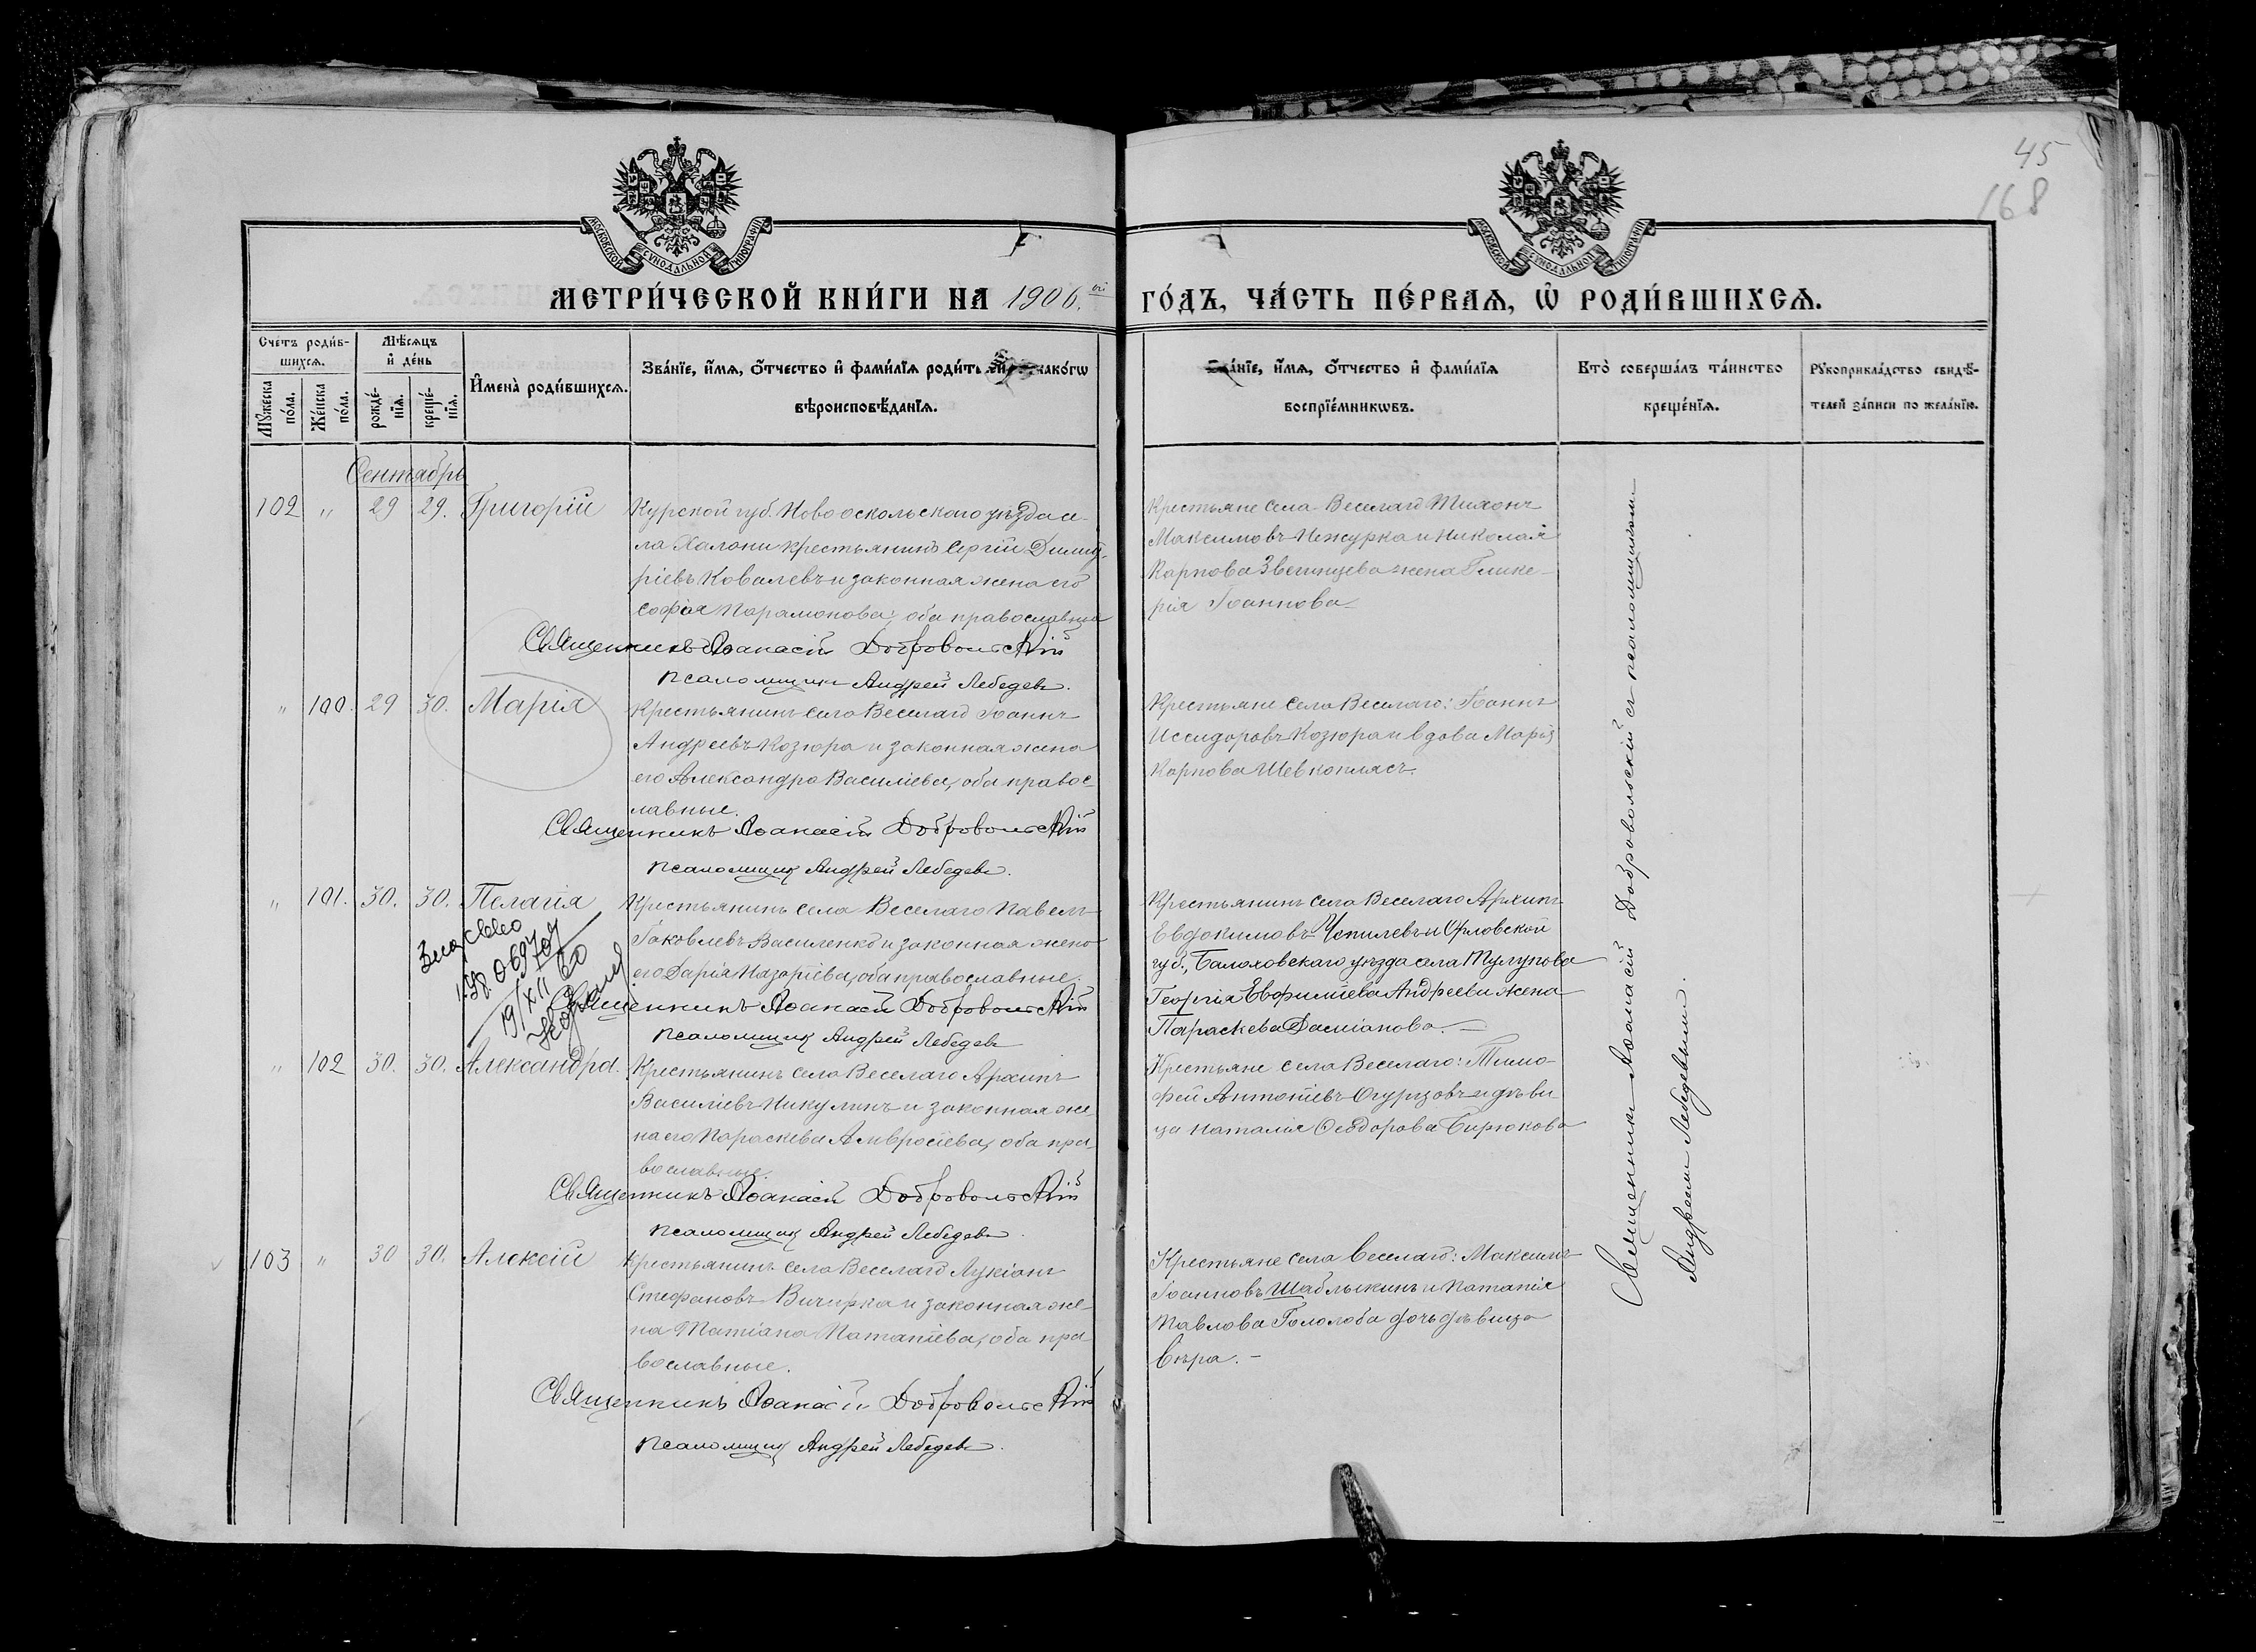 45
168
МОСКОВСКОЙ СѴНОДАЛЬНОЙ ТИПОГРАФІИ
МОСКОВСКОЙ СѴНОДАЛЬНОЙ ТИПОГРАФІИ
МЕТРИ́ЧЕСКОЙ КНИ́ГИ НА 1906.
ГО́ДЪ, ЧА́СТЬ ПЕ́РВАѦ, Ѽ РОДИ́ВШИХСѦ.
Сче́тъ роди́в-
шихсѧ.
Мѣ́сѧцъ
и҆ де́нь
Мꙋ́жеска
по́ла.
Же́нска
по́ла.
рожде́-
нїѧ.
креще́-
нїѧ.
И҆мена̀ роди́вшихсѧ.
Зва́нїе, и҆́мѧ, ѻ҆́тчество и҆ фами́лїѧ роди́т како́гѡ
вѣроисповѣ́данїѧ.
а́нїе, и҆́мѧ, ѻ҆́тчество и҆ фами́лїѧ
воспрїе́мникѡвъ.
Кто̀ соверша́лъ та́инство
креще́нїѧ.
Рꙋкоприкла́дство свидѣ́-
телей за́писи по жела́нїю.
Сентябрь
102 " 29 29. Григорій
Курской губ. Новооскольскаго уѣзда се-
ла Халани крестьянинъ Сергій Димит-
ріевъ Ковалевъ и законная жена его
Софія Парамонова, оба православные
Священникъ Аѳанасій Добровольскій
Псаломщикъ Андрей Лебедевъ.
Крестьяне села Веселаго Тихонъ
Максимовъ и Николая
Карпова Звегинцева жена Глике-
рія Іоаннова
" 100. 29 30. Марія
Крестьянинъ села Веселаго Іоаннъ
Андреевъ Козюра и законная жена
его Александра Василіева, оба правос-
лавные.
Священникъ Аѳанасій Добровольскій
Псаломщикъ Андрей Лебедевъ.
Крестьяне села Веселаго: Іоаннъ
Исидоровъ Козюра и вдова Марія
Карпова Шевкоплясъ.
" 101. 30. 30. Пелагія
Крестьянинъ села Веселаго Павелъ
Іаковлевъ Василенко и законная жена
его Дарія Назаріева, оба православные.
Священникъ Аѳанасій Добровольскій
Псаломщикъ Андрей Лебедевъ
19/XII 60
Крестьянинъ села Веселаго Архипъ
Евдокимовъ Чепилевъ и Орловской
губ., Балаховскаго уѣзда села Тулупова
Георгія Евфиміева Андреева жена
Параскева Даміанова. —
" 102 30. 30. Александра.
Крестьянинъ села Веселаго Архипъ
Василіевъ Никулинъ и законная же-
на его Параскева Амвросіева, оба пра-
вославные.
Священникъ Аѳанасій Добровольскій
Псаломщикъ Андрей Лебедевъ.
Крестьяне села Веселаго: Тимо-
фей Антоніевъ Огурцовъ и дѣви-
ца Наталія Ѳеодорова Бирюкова
103 " 30 30. Алексій
Крестьянинъ села Веселаго Лукіанъ
Стефановъ Вичирка и законная же-
на Татіана Потапіева, оба пра-
вославные.
Священникъ Аѳанасій Добровольскій
Псаломщикъ Андрей Лебедевъ.
Крестьяне села Веселаго: Максимъ
Іоанновъ Шаблыкинъ и
Павлова Гололоба дочь дѣвица
Вѣра. —
Священникъ Аѳанасій Добровольскій съ псаломщикомъ
Андреемъ Лебедевымъ.